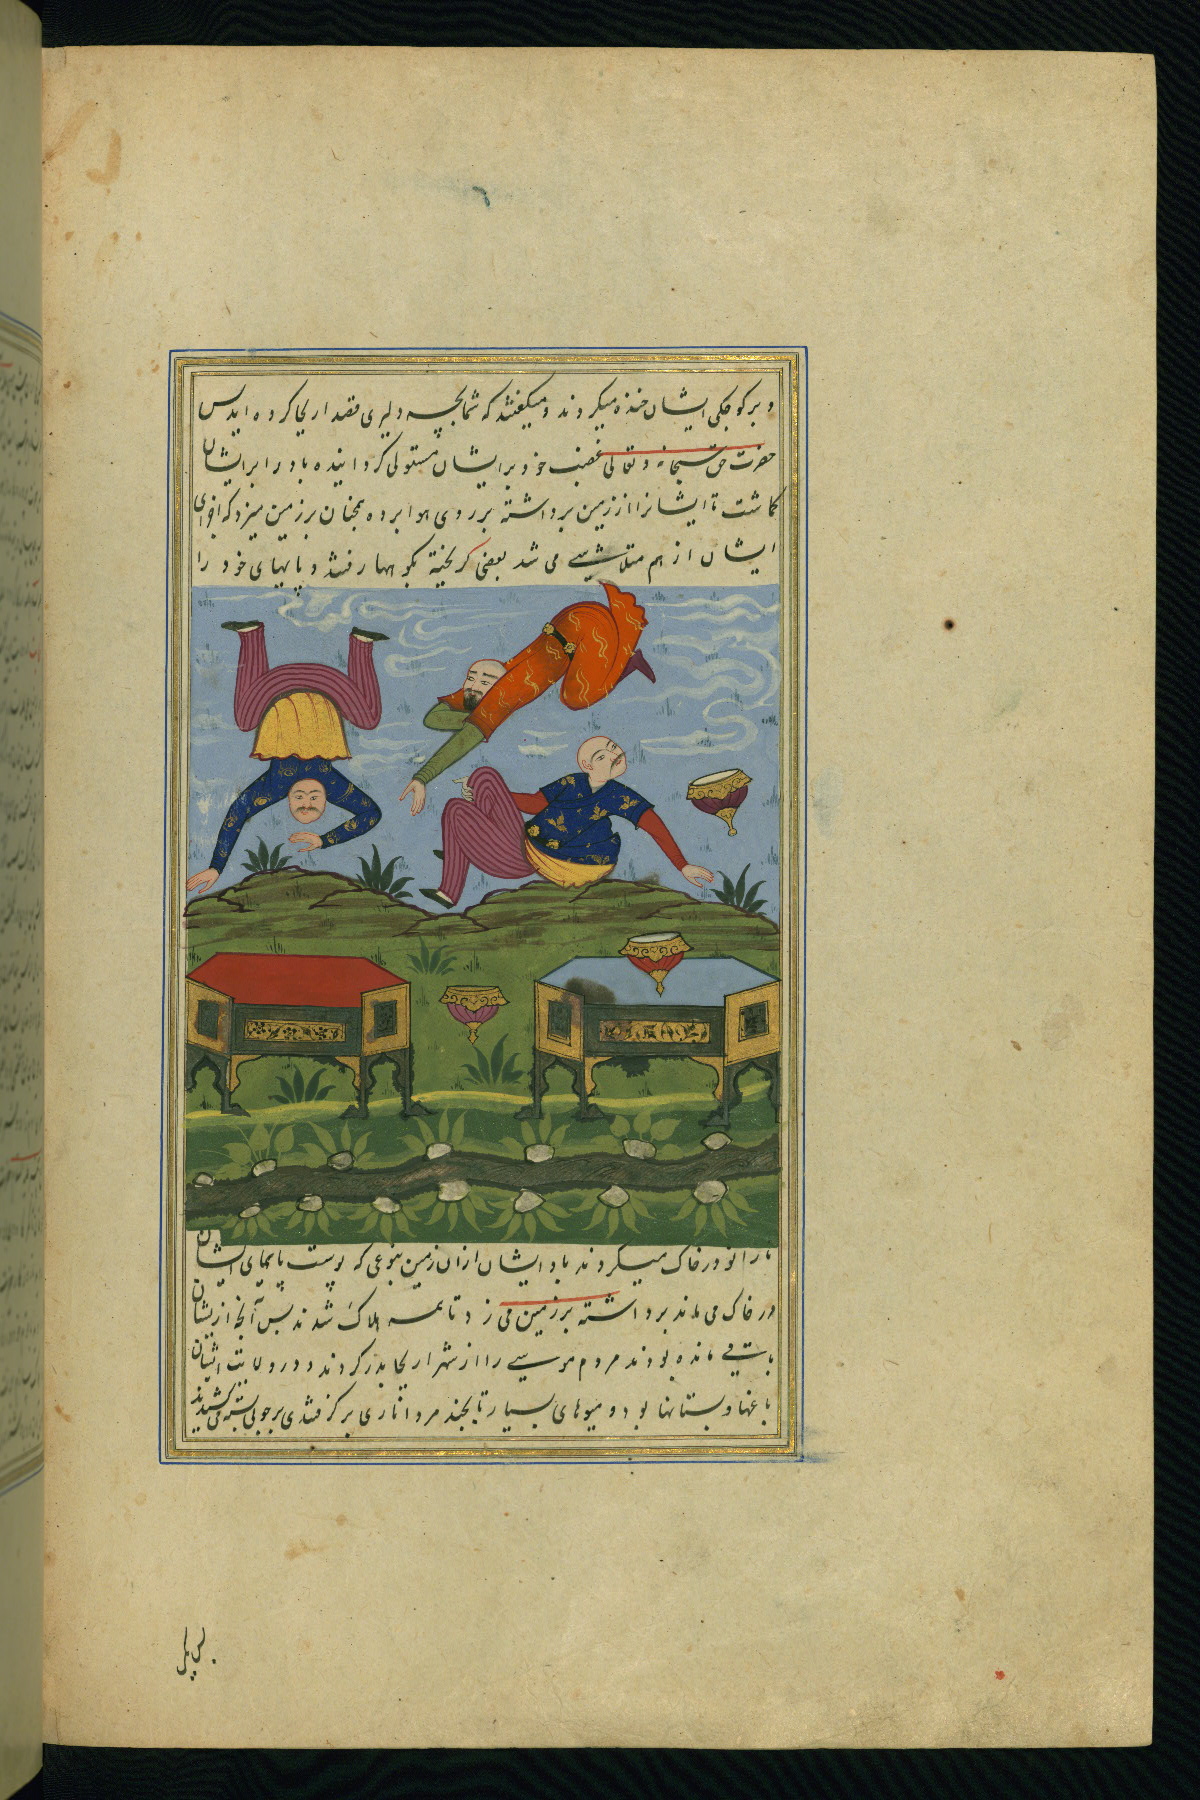 و بر کوچکی ایشان خنده میکردند و میکفتند که شما بچه دلیری قصد اریحا کرده اید پس
حضرت حق سبحانه و تعالی غضب خود بر ایشان مستولی کردانیده باد را بر ایشان
کماشت تا ایشانرا از زمین برداشته بر روی هوا برده همچنان بر زمین میزد که اجزای
ایشان از هم متلاشی می شد بعضی کریخته بکوهها رفتند و پایهای خود را
تا زانو در خاک میکردند باد ایشان از ان زمین بنوعی که پوست پایهای ایشان
در خاک می ماند برداشته بر زمین می زد تا همه هلاک شدند پس آنچه از یشان
باقی مانده بودند مردم موسی را از شهر اریحا بدر کردند و در ولایت ایشان
باغها و بستانها بود و میوهای بسیار تا پنجد مرد اناری بر کرفتندی بر چوبی بسته می کشیدند